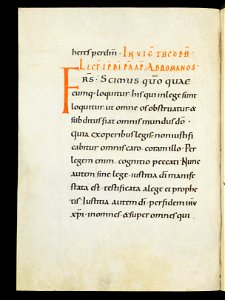 heres perdım. IN VIG THEOPH
LECT EPI BEATI PAVLI AD ROMANOS
FRS. Scimus quō quae
cumq. loquitur. his qui in lege sunt
loquitur. ut omne os obstruatur. &
subditus fiat omnis mundus dō.
quia ex operibus legis non iustifi
cabitur omnis caro coram illo. Per
legem enim cognitio peccati. Nunc
autem sine lege iustitia dī manife
stata est. testificata a lege et prophe
tis. Iustitia autem dī. per fidem ihū
xpī. in omnes & super omnes qui